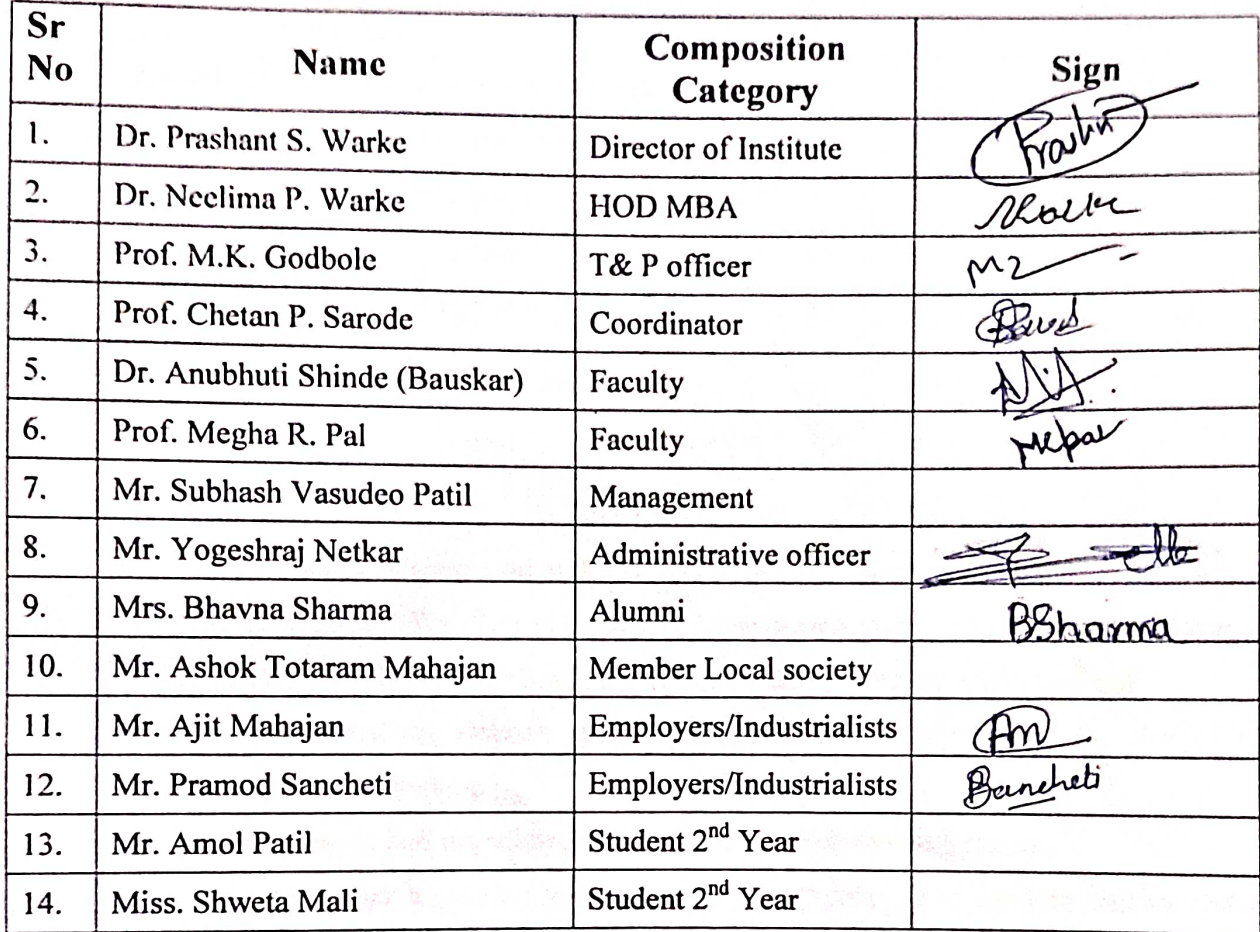 Sr No Name Composition Category Sign
1. Dr. Prashant S. Warke Director of Institute
2. Dr. Neelima P. Warke HOD MBA
3. Prof. M.K. Godbole T& P officer
4. Prof. Chetan P. Sarode Coordinator
5. Dr. Anubhuti Shinde (Bauskar) Faculty
6. Prof. Megha R. Pal Faculty
7. Mr. Subhash Vasudeo Patil Management
8. Mr. Yogeshraj Netkar Administrative officer
9. Mrs. Bhavna Sharma Alumni BSharma
10. Mr. Ashok Totaram Mahajan Member Local society
11. Mr. Ajit Mahajan Employers/Industrialists AM
12. Mr. Pramod Sancheti Employers/Industrialists Sancheti
13. Mr. Amol Patil Student 2nd Year
14. Miss. Shweta Mali Student 2nd Year